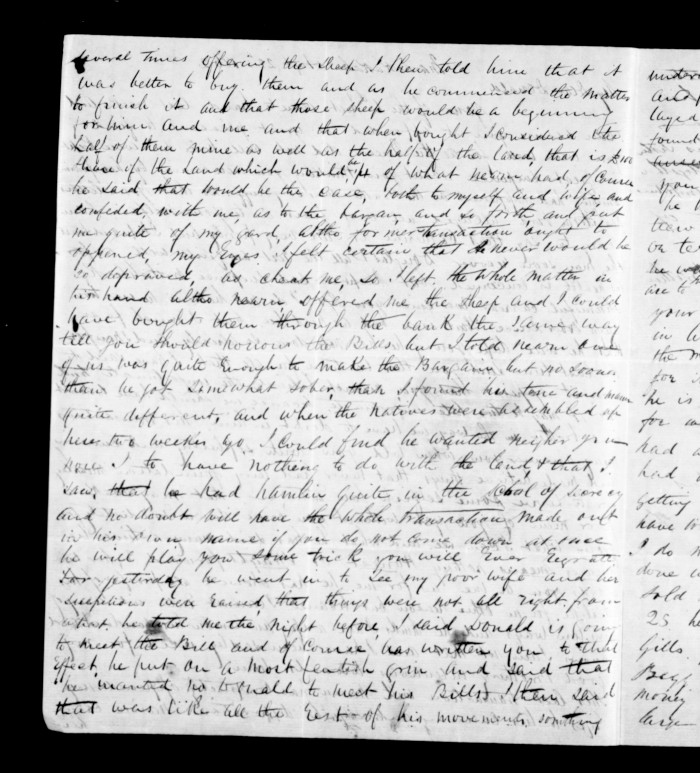 several times offering the sheep I then told him that it
was better to buy them and as he commenced the matter
to finish it and that those sheep would be a beginning
for him and me, and that when bought I considered the
half of them mine as well as the half of the land, that is
share of the Land which would be of what nearn had, of Course
he said that would be the case, both to myself and wife and
confided, with me, as to the bargain and so forth and put
me quite of my gard, altho former transaction ought to
oppened, my Eyes, I felt certain that he never would be
so depraived, as cheat me, so I left the whole matter in
his hand altho nearn offered me the sheep and I could
have bought them through the bank the same way
tell you should honious the Bills but I told nearn one
of us was quite Enough to make the Bargain but no sooner
than he got somewhat sober, than I found his tone and
quite different, and when the natives were assembled up
here two weekes go, I could find he wanted neigher you
nore I to have nothing to do with the land, & that I
saw, that he had hamlin quite in the of
and no doubt will have the whole transaction made out
in his own name if you do not come down at once
he will play you some trick you will Ever
For yesterday he went in to see my poor wife and her
suspitions were raised, that things were not all right from
what he told me the night before, I said Donald is going
to meet the Bill and of Course has written you to that
Effect he put on a most grin and said that
he wanted no to meet his Bills I then said
that was like all the rest of his movements, somthing
under
and
layed
found
you
he
ten
he wo
are to
your
in
the
for
he is
for
had
had
getting
have to
I do
done
told
25 he
Gills.
Begs
money
large